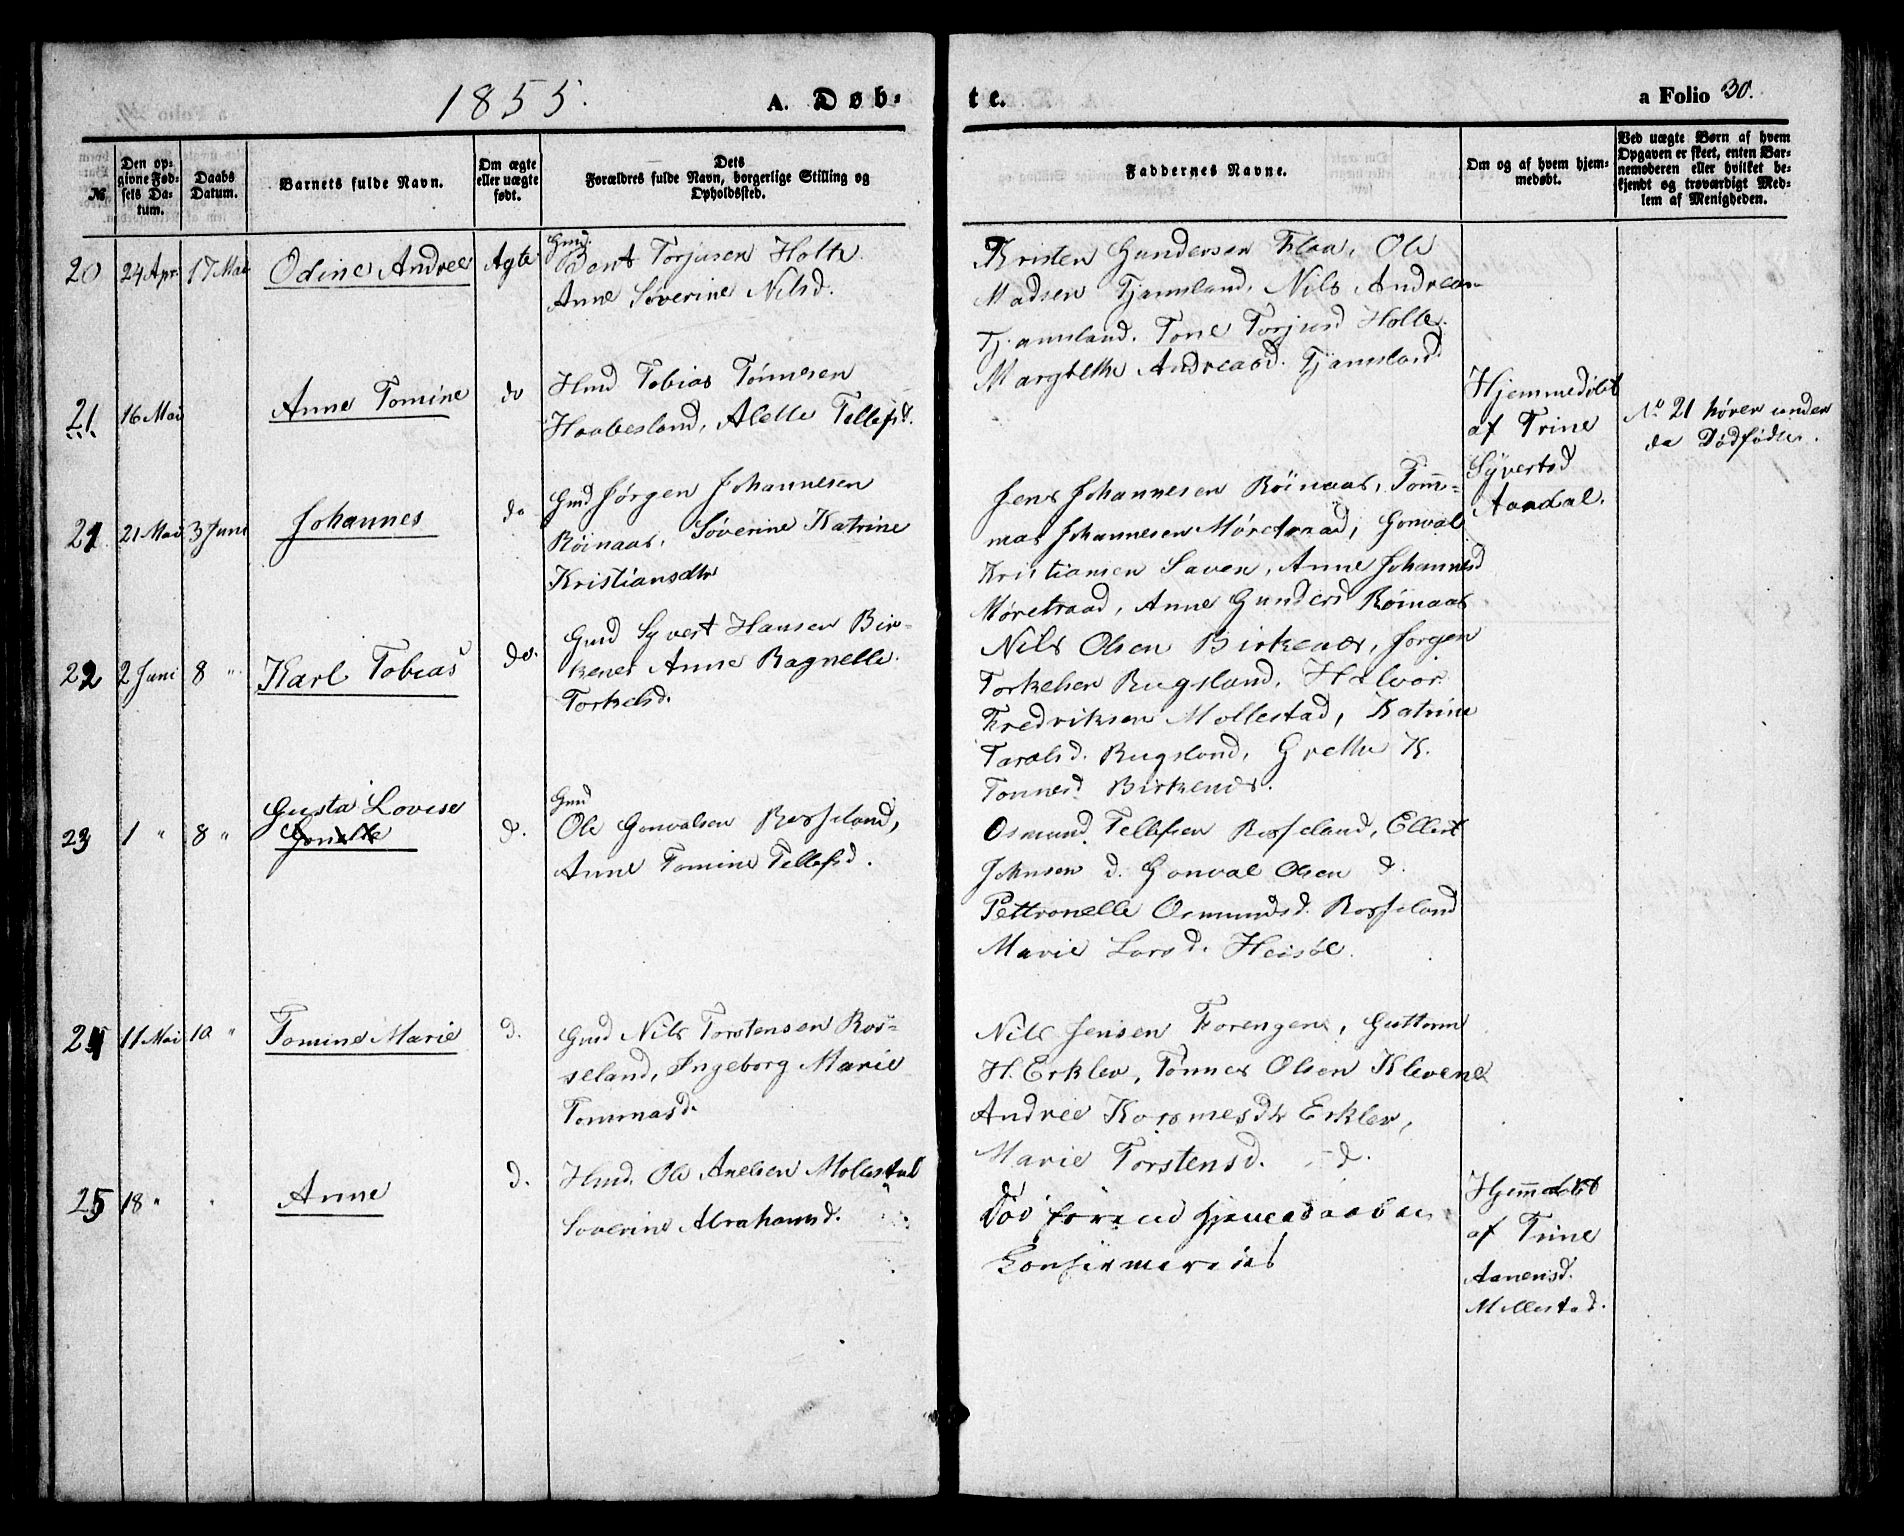 1855.
A. Døb-
te.
a Folio 30.
№
Den op-
givne Fød-
sels Da-
tum.
Daabs
Datum.
Barnets fulde Navn.
Om ægte
eller uægte
født.
Dets
Forældres fulde Navn, borgerlige Stilling og
Opholdssted.
Faddernes Navne.
Om og af hvem hjem-
medøbt.
Ved uægte Børn af hvem
Opgaven er skeet, enten Bar-
nemøderen eller hvilket be-
kjendt og troværdigt Med-
lem af Menigheden.
20 24 Apr. 17 Mai Odine Andree Ægte
Gmd.
Bent Torjusen Holte
Anne Søverine Nilsd.
Kristen Gundersen Flaa, Ole
Madsen Tjamsland, Nils Andreas
Tjamsland. Tone Torjusd Holte.
Margrethe Andreasd. Tjamsland
21 16 Mai Anne Tomine do
Hmd Tobias Tønnesen
Haabesland, Alette Tellefsd.
Hjemmedøbt
af Trine
Syvertsd
Aardal.
No 21 hører under
de Dødfødte.
21 21 Mai 3 Juni Johannes do
Gmd Jørgen Johannesen
Røinaas, Søverine Katrine
Kristiansdtr
Jens Johannesen Røinaas, Tom-
mas Johannesen Møretraad, Gonval
Kristiansen Saven, Anne Johannesd
Møretraad, Anne Gundersd Røinaas
22 2 Juni 8 " Karl Tobias do.
Gmd Syvert Hansen Bir-
kenes Anne Ragnelle
Torkelsd.
Nils Olsen Birkenes, Jørgen
Torkelsen Rugsland, Halvor
Fredriksen Mollestad, Katrine
Taralsd. Rugsland, Grethe K.
Tonnesd Birkenes.
23 1 " 8 " Gusta Lovise
d.
Gmd
Ole Gonvalsen Rosseland,
Anne Tomine Tellefsd.
Osmund Tellefsen Rosseland, Ellert
Johnsen d. Gonval Olsen d.
Pettronelle Osmundsd. Rosseland
Marie Larsd. Heisøl.
24 11 Mai 10 " Tomine Marie d.
Gmd Nils Torstensen Ros-
seland, Ingeborg Marie
Tommasd.
Nils Jensen Forengen, Guttorm
H. Erklev, Tønnes Olsen Klevene
Andree Kosmesdtr Erklev,
Marie Torstensd. d.
25 18 " " Anne d.
Hmd. Ole Anelsen Mollestad
Soverine Abrahamsd.
Død førend Hjemedaaben
Confirmeredes
Hjemmedøbt
af Trine
Aanensd.
Mollestad.